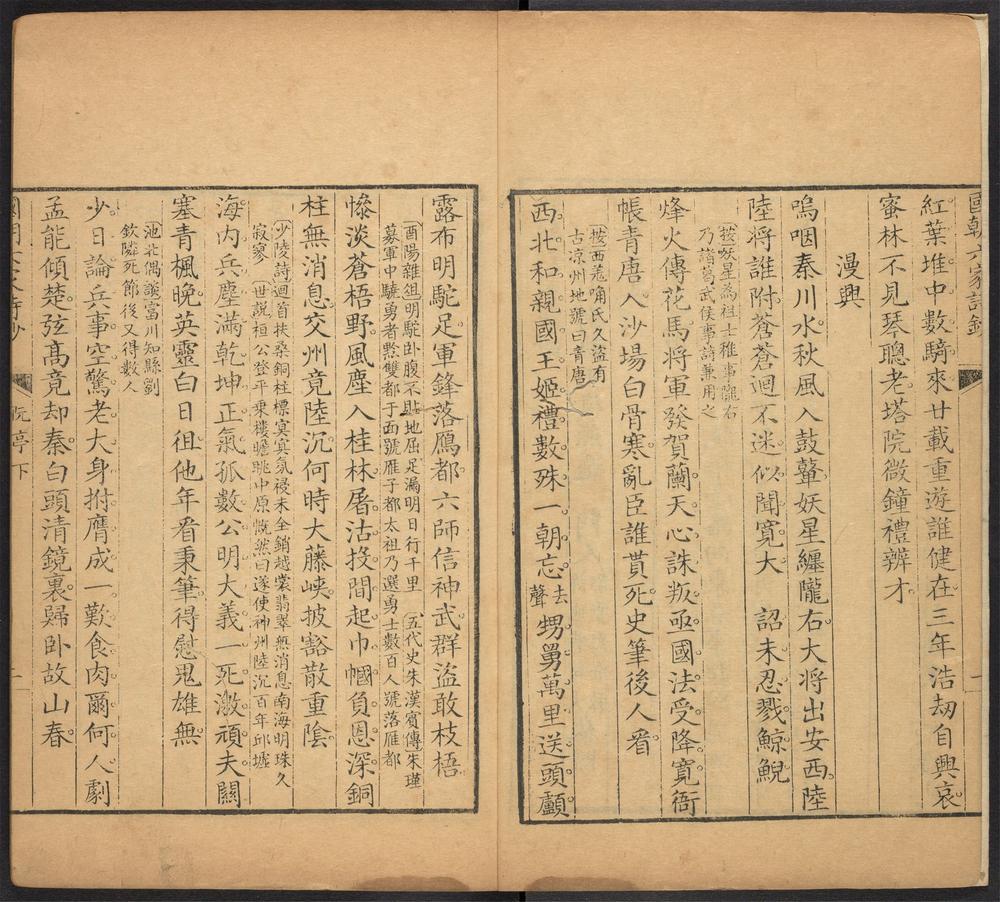 國朝六家詩鈔
紅葉堆中數騎來廿載重遊誰健在三年浩劫自興哀
蜜林不見琴聰老塔院微鐘禮辨才
漫興
嗚咽秦川水秋風入鼓鼙妖星纏隴右大將出安西陸
陸將誰附蒼蒼迴不迷似聞寬大 詔未忍戮鯨鯢
按妖星為祖士稚事隴右
乃諸葛武侯事詩兼用之
烽火傳花馬將軍發賀蘭天心誅叛亟國法受降寬衙
帳青唐入沙場白骨寒亂臣誰貰死史筆後人看
按西羌唃氏久盜有
古涼州地號曰青唐
西北和親國王姬禮數殊一朝忘去聲甥舅萬里送頭顱
露布明駝足軍鋒落鴈都六師信神武群盜敢枝梧
酉陽雜俎明駝卧腹不貼地屈足漏明日行千里 五代史朱漢賓傳朱瑾
募軍中驍勇者黥雙都于面號雁子都太祖乃選勇士數百人號落雁都
慘淡蒼梧野風塵入桂林屠沽投間起巾幗負恩深銅
柱無消息交州竟陸沉何時大藤峽披豁散重陰
少陵詩迴首扶桑銅柱標冥冥氛祲未全銷越裳翡翠無消息南海明珠久
寂寥 世説桓公登平乗樓瞻眺中原慨然曰遂使神州陸沉百年邱墟
海内兵塵滿乾坤正氣孤數公明大義一死激頑夫關
塞青楓晚英靈白日徂他年看秉筆得慰鬼雄無
池北偶談富川知縣劉
欽隣死節後又得數人
少日論兵事空驚老大身拊膺成一歎食肉爾何人劇
孟能傾楚弦高竟却秦白頭清鏡裏歸卧故山春
阮亭下